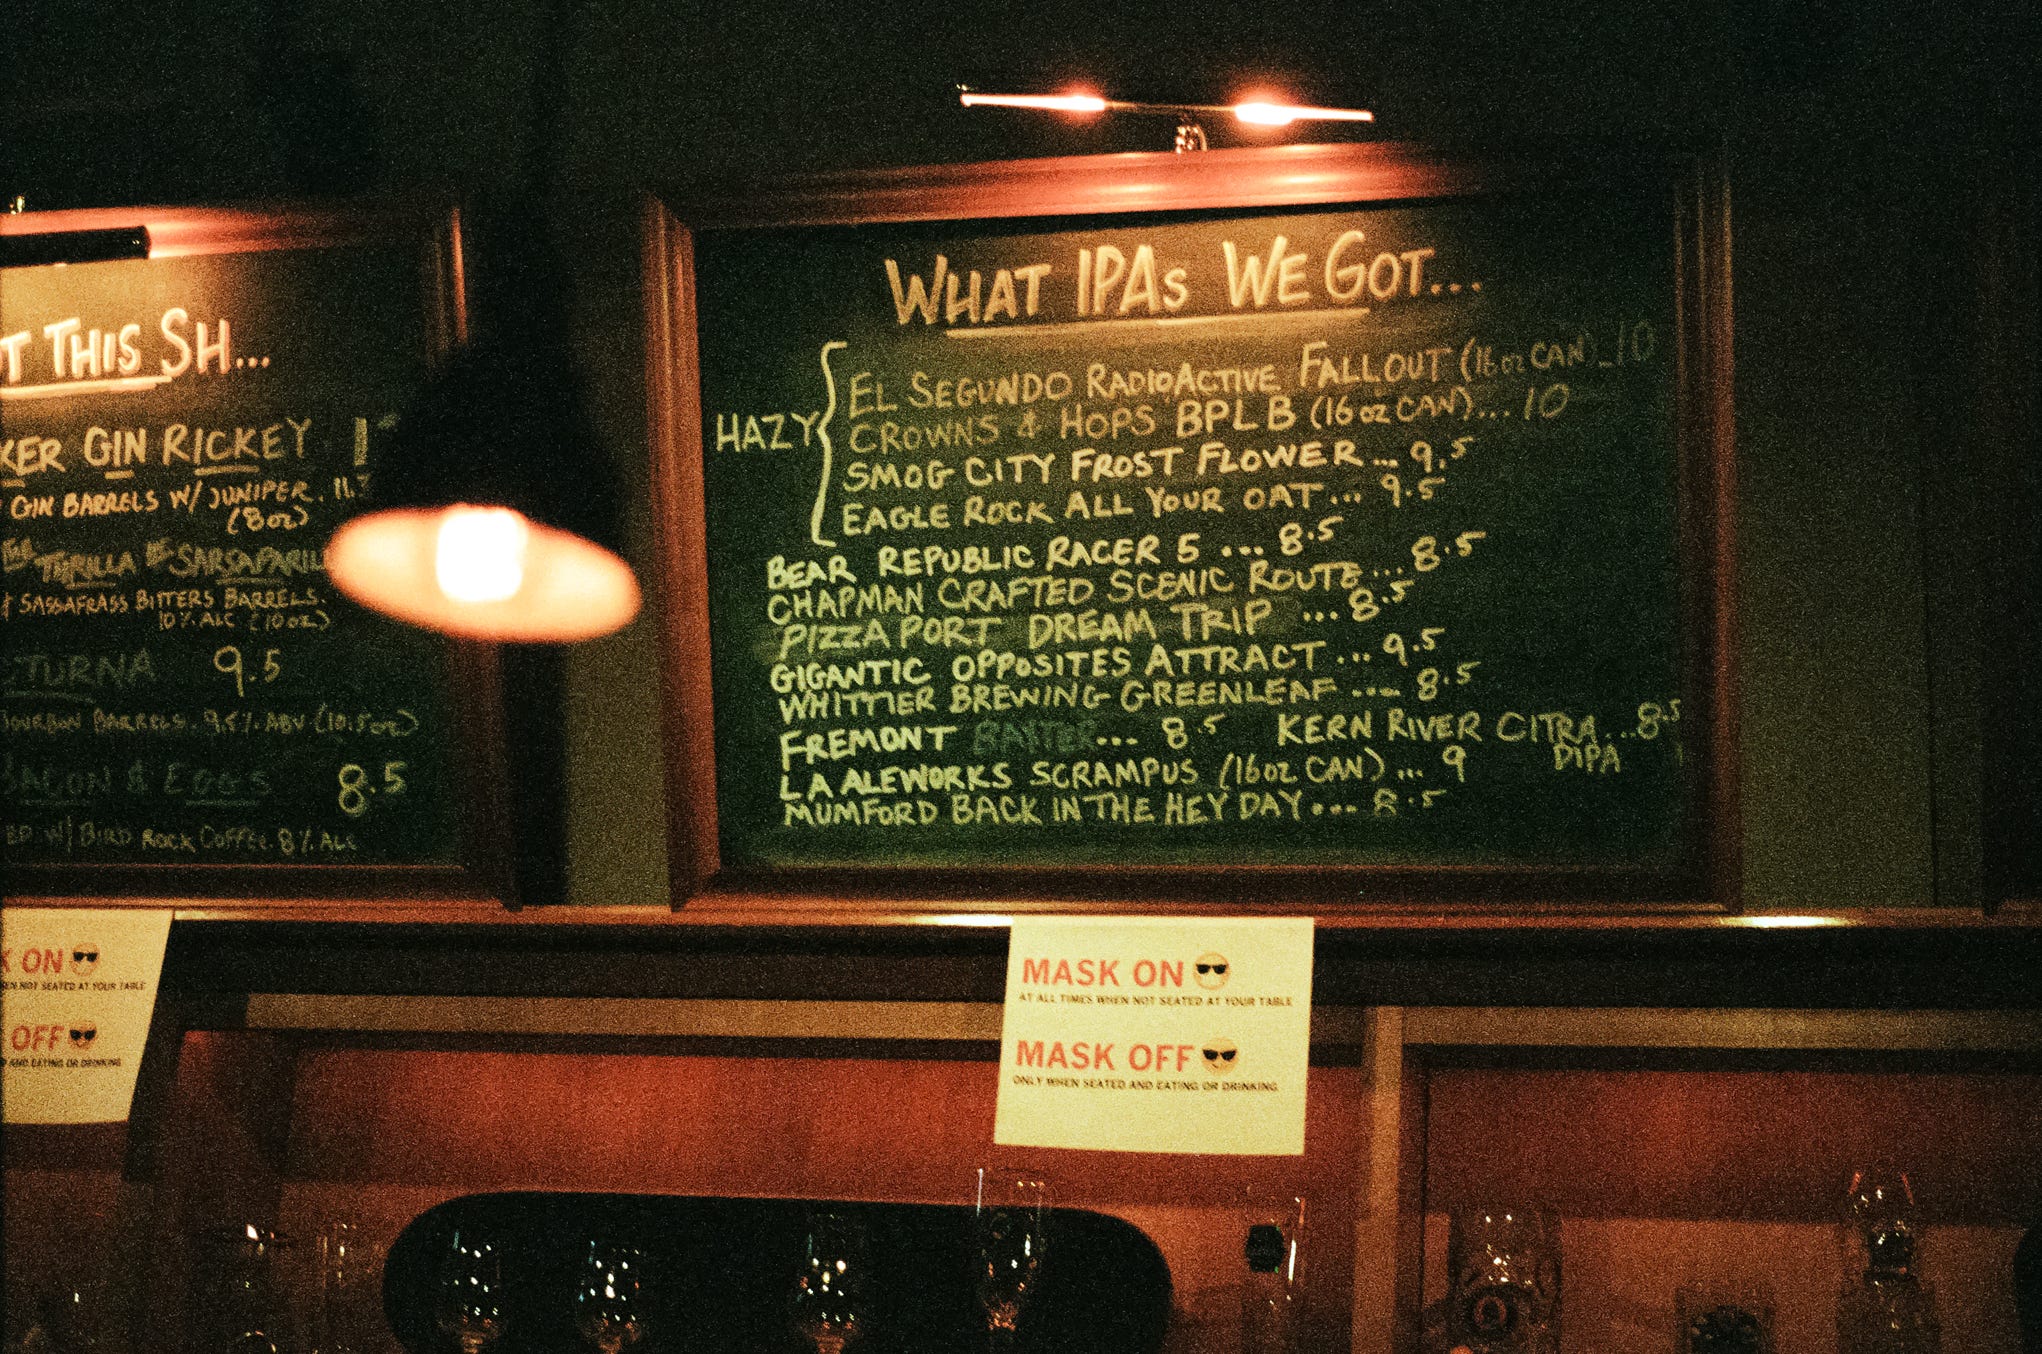 T THIS SH...
KER GIN RICKEY
GIN BARRELS W/ JUNIPER. 11.
(8oz)
THRILLA SARSAPARIL
& SASSAFRASS BITTERS BARRELS.
10% ALC (10oz)
CTURNA 9.5
BOURBON BARRELS. 9.5% ABV (10.5oz)
BACON & EGGS 8.5
ED W/ BIRD ROCK COFFEE. 8% ALC
WHAT IPAs WE GOT...
HAZY
EL SEGUNDO RADIOACTIVE FALLOUT (16oz CAN)...10
CROWNS & HOPS BPLB (16oz CAN)...10
SMOG CITY FROST FLOWER...9.5
EAGLE ROCK ALL YOUR OAT...9.5
BEAR REPUBLIC RACER 5...8.5
CHAPMAN CRAFTED SCENIC ROUTE...8.5
PIZZA PORT DREAM TRIP...8.5
GIGANTIC OPPOSITES ATTRACT...9.5
WHITTIER BREWING GREENLEAF....8.5
FREMONT BAXTER...8.5 KERN RIVER CITRA...8.5
DIPA
LA ALEWORKS SCRAMPUS (16oz CAN)...9
MUMFORD BACK IN THE HEY DAY...8.5
K ON
EN NOT SEATED AT YOUR TABLE
OFF
AND EATING OR DRINKING
MASK ON
AT ALL TIMES WHEN NOT SEATED AT YOUR TABLE
MASK OFF
ONLY WHEN SEATED AND EATING OR DRINKING